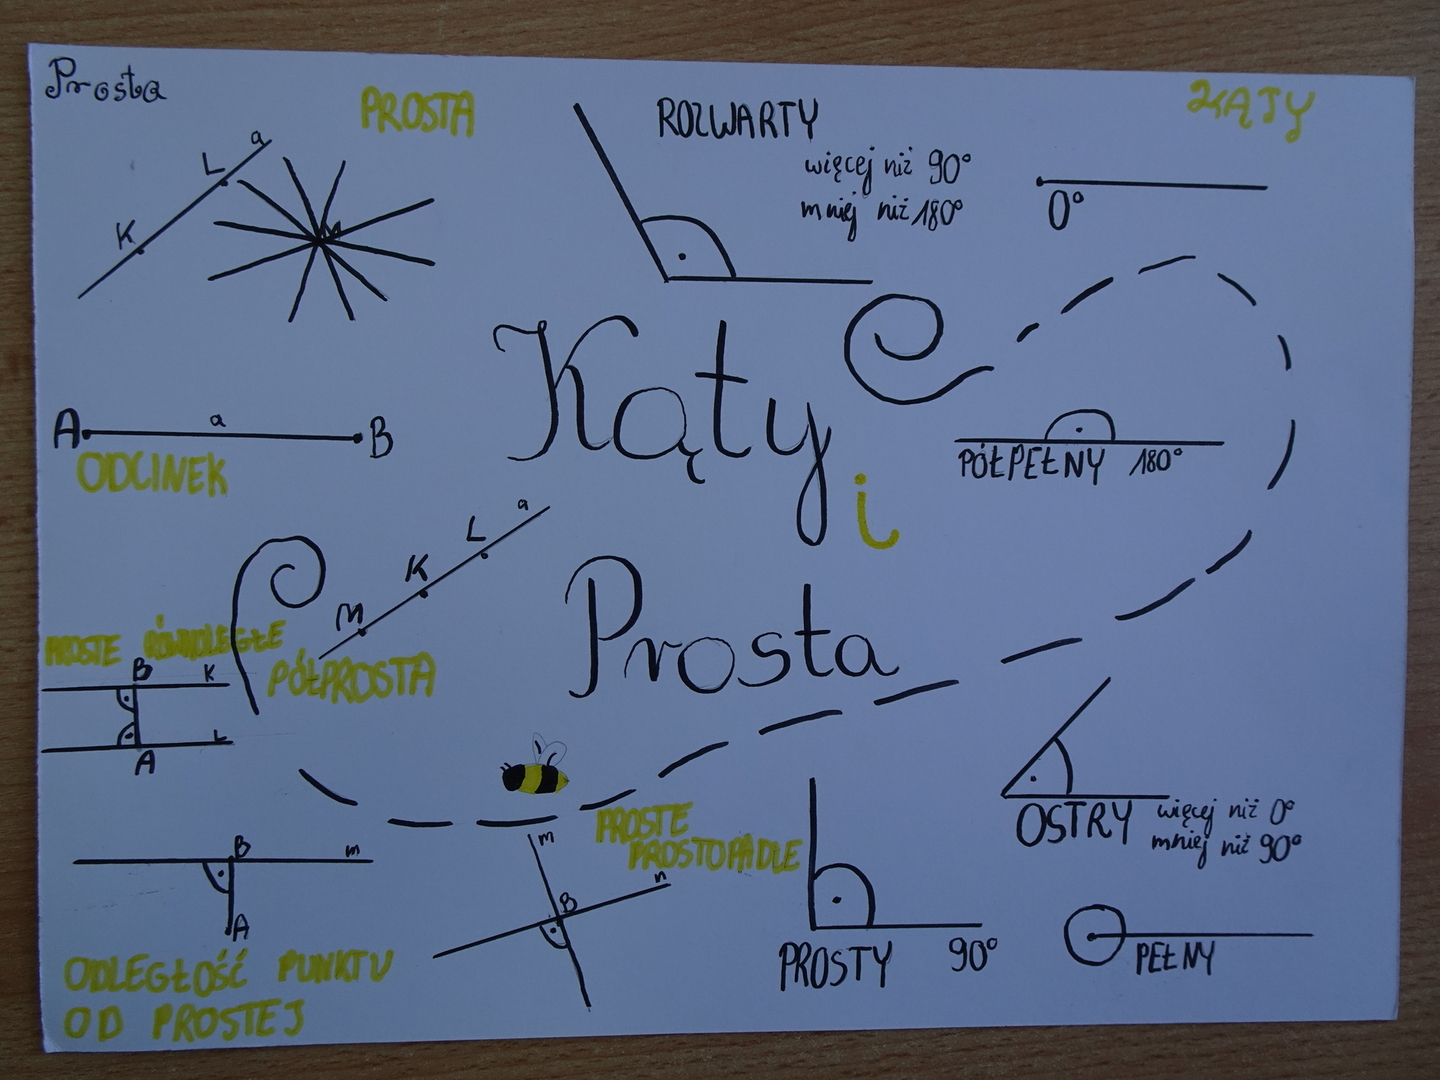 Prosta
PROSTA
KĄTY
a
L
K
M
ROZWARTY
więcej niż 90°
mniej niż 180°
0°
A
a
B
ODCINEK
Kąty
i
Prosta
PÓŁPEŁNY 180°
a
L
K
M
PÓŁPROSTA
PROSTE RÓWNOLEGŁE
B
K
L
A
B
m
A
ODLEGŁOŚĆ PUNKTU
OD PROSTEJ
PROSTE
PROSTOPADLE
m
n
B
PROSTY 90°
OSTRY
więcej niż 0°
mniej niż 90°
PEŁNY